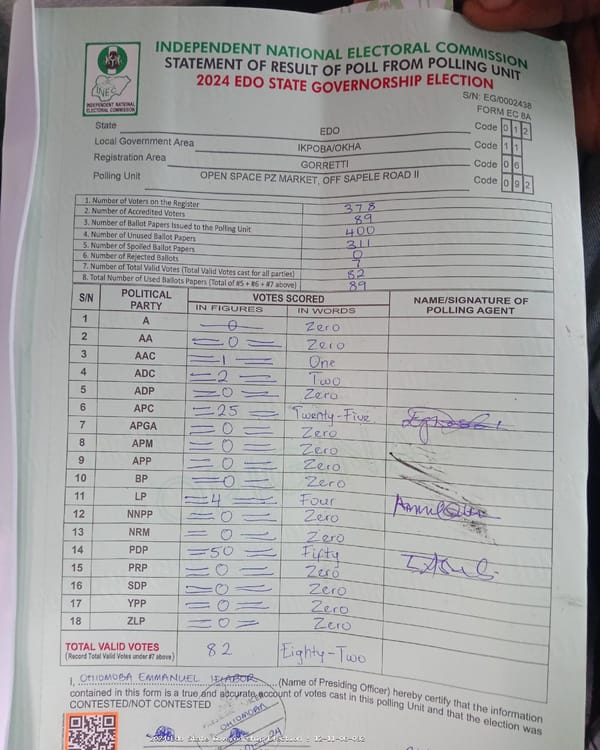 INDEPENDENT NATIONAL ELECTORAL COMMISSION
STATEMENT OF RESULT OF POLL FROM POLLING UNIT
2024 EDO STATE GOVERNORSHIP ELECTION
INEC
INDEPENDENT NATIONAL ELECTORAL COMMISSION
S/N: EG/0002438
FORM EC 8A
State EDO Code 0 1 2
Local Government Area IKPOBA/OKHA Code 1 1
Registration Area GORRETTI Code 0 6
Polling Unit OPEN SPACE PZ MARKET, OFF SAPELE ROAD II Code 0 9 2
1. Number of Voters on the Register 378
2. Number of Accredited Voters 89
3. Number of Ballot Papers Issued to the Polling Unit 400
4. Number of Unused Ballot Papers 311
5. Number of Spoiled Ballot Papers 0
6. Number of Rejected Ballots 7
7. Number of Total Valid Votes (Total Valid Votes cast for all parties) 82
8. Total Number of Used Ballots Papers (Total of #5 + #6 + #7 above) 89
S/N POLITICAL PARTY VOTES SCORED NAME/SIGNATURE OF POLLING AGENT
IN FIGURES IN WORDS
1 A 0 Zero
2 AA 0 Zero
3 AAC 1 One
4 ADC 2 Two
5 ADP 0 Zero
6 APC 25 Twenty-Five
7 APGA 0 Zero
8 APM 0 Zero
9 APP 0 Zero
10 BP 0 Zero
11 LP 4 Four
12 NNPP 0 Zero
13 NRM 0 Zero
14 PDP 50 Fifty
15 PRP 0 Zero
16 SDP 0 Zero
17 YPP 0 Zero
18 ZLP 0 Zero
TOTAL VALID VOTES 82 Eighty-Two
(Record Total Valid Votes under #7 above)
I, OHIOMOBA EMMANUEL (Name of Presiding Officer) hereby certify that the information
contained in this form is a true and accurate account of votes cast in this polling Unit and that the election was
CONTESTED/NOT CONTESTED
OHIOMOBA